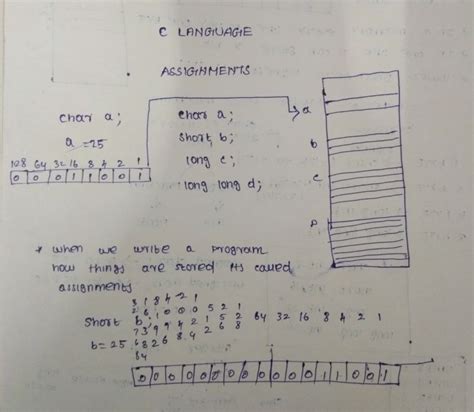 C LANGUAGE
ASSIGNMENTS
char a;
a = 25
128 64 32 16 8 4 2 1
0 0 0 1 1 0 0 1
char a;
short b;
long c;
long long d;
a
b
C
D
* when we write a program
how things are stored its called
assignments
3 1 8 4 2 1
2 6 1 0 0 0 5 2 1
short b; 7 3 9 9 4 2 1 5 2 64 32 16 8 4 2 1
b = 25. 6 8 2 6 8 4 2 6 8
8 4
0 0 0 0 0 0 0 0 0 0 0 1 1 0 0 1